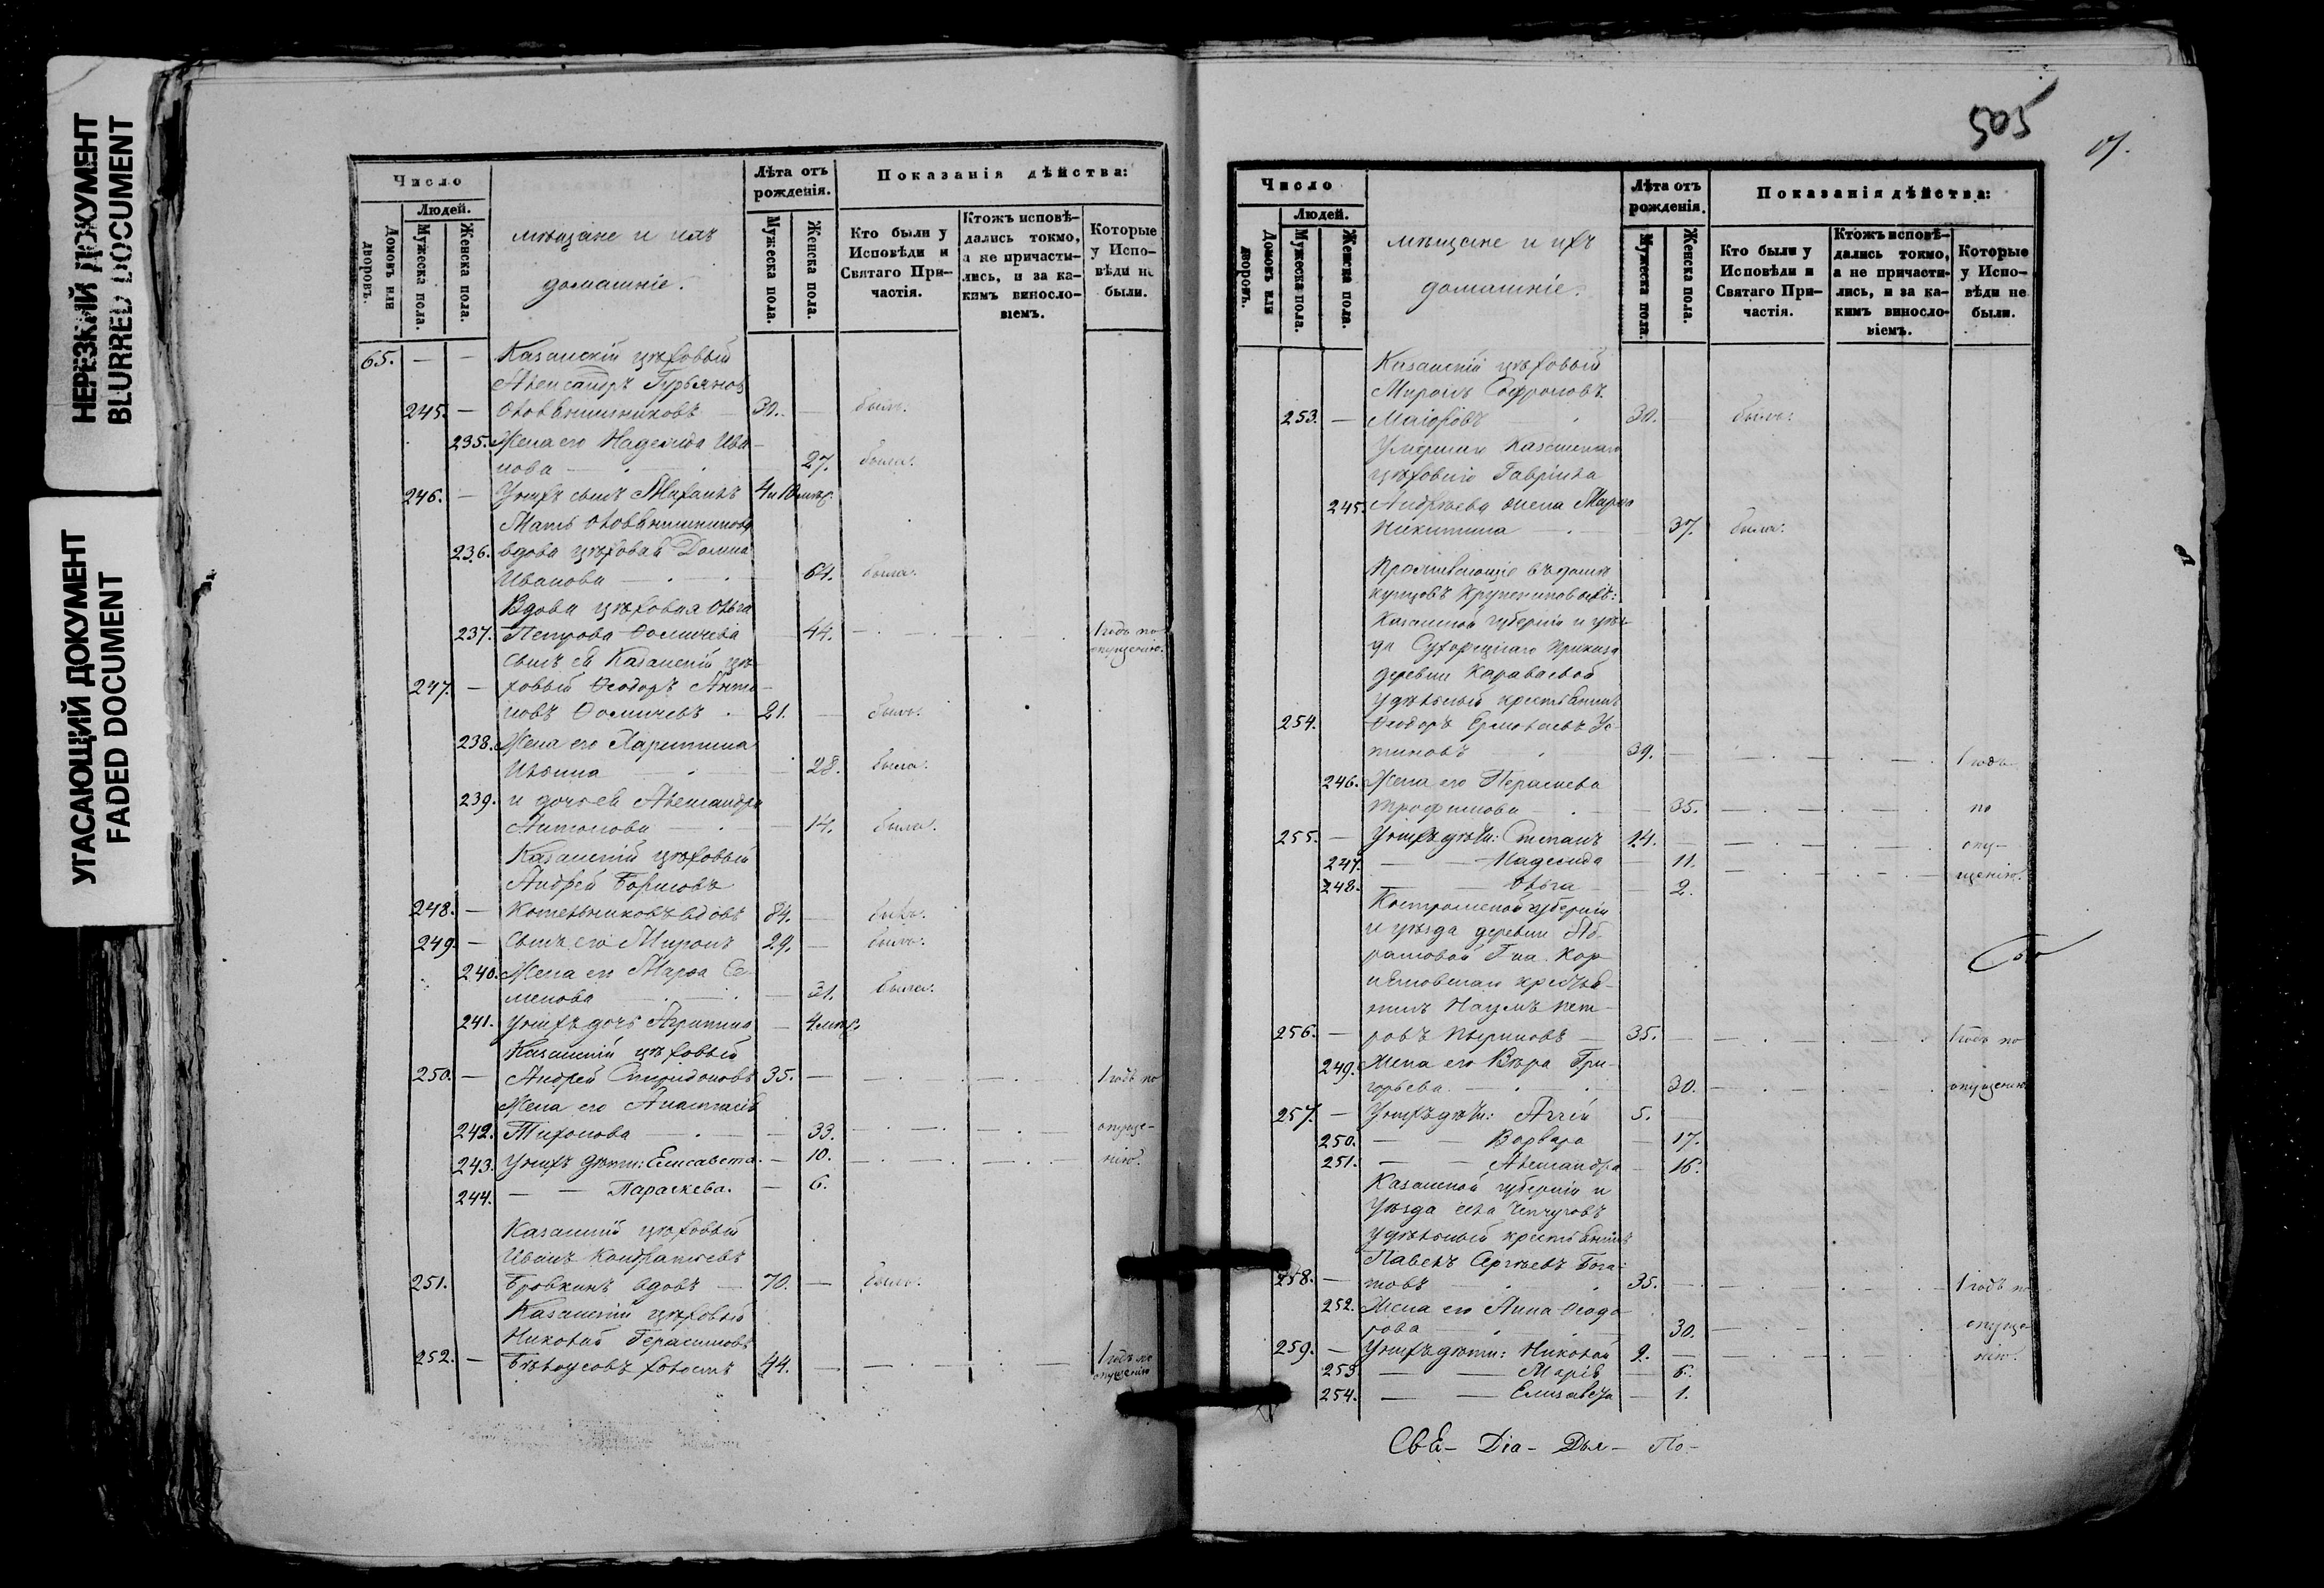 НЕРЕЗКИЙ ДОКУМЕНТ
BLURRED DOCUMENT
УГАСАЮЩИЙ ДОКУМЕНТ
FADED DOCUMENT
Число
Людей.
Домовъ или дворовъ.
Мужеска пола.
Женска пола.
мѣщане и ихъ
домашніе.
Лѣта отъ рожденія.
Мужеска пола.
Женска пола.
Показанія дѣйства:
Кто были у Исповѣди и Святаго При-
частія.
Ктожъ исповѣ-
дались токмо,
а не причасти-
лись, и за ка-
кимъ виносло-
віемъ.
Которые
у Испо-
вѣди не
были.
65. — — Казанскій цѣховый
Александръ Гурьяновъ
245. — 30. — былъ.
235. Жена его Надежда Ива-
нова — 27. была.
246. — У нихъ сынъ 4 и 10 мѣс.
Мать
236. вдова цѣховая Домна
Иванова — 64. была.
Вдова цѣховая Ольга
237. Петрова Ѳомичева — 44. — 1 годъ по
опущенію.
Сынъ ея Казанскій цѣ-
247. — ховый Ѳеодоръ Анто-
новъ Ѳомичевъ 21. — былъ.
238. Жена его Харитина
— 28. была.
239. и дочь ея Александра
Антонова — 14. была.
Казанскій цѣховый
Андрей Борисовъ
248. — Котельниковъ вдовъ 84. — былъ.
249. — Сынъ его Миронъ 29. — былъ.
240. Жена его Марѳа Се-
менова — 31. была.
241. У нихъ дочь — 4 мѣс.
Казанскій цѣховый
250. — Андрей Спиридоновъ 35. — 1 годъ по
Жена его Анастасія
242. Тихонова — 33. опуще-
243. У нихъ дѣти: Елисавета. — 10. нію.
244. — — Параскева. — 6.
Казанскій цѣховый
Иванъ Кондратьевъ
251. Бровкинъ вдовъ — 70. — былъ.
Казанскій цѣховый
Николай Герасимовъ
252. — Бѣлоусовъ холостъ 44. — 1 годъ по
опущенію
505
17.
Число
Людей.
Домовъ или дворовъ.
Мужеска пола.
Женска пола.
мѣщане и ихъ
домашніе.
Лѣта отъ рожденія.
Мужеска пола.
Женска пола.
Показанія дѣйства:
Кто были у
Исповѣди и
Святаго При-
частія.
Ктожъ исповѣ-
дались токмо,
а не причасти-
лись, и за ка-
кимъ виносло-
віемъ.
Которые
у Испо-
вѣди не
были.
Казанскій цѣховый
Миронъ Софроновъ
253. — Маіоровъ 30. — былъ.
Умершаго Казанскаго
цѣховаго Гавріила
245. Андреева жена Марѳа
Никитина — 37. была.
Проживающіе въ домѣ
купцовъ Крупениковыхъ:
Казанской губерніи и уѣз-
да Сухорѣцкаго приказа
деревни Караваевой
Удѣльный крестьянинъ
254. Ѳеодоръ Ермолаевъ Ус-
тиновъ 39. — 1 годъ
246. Жена его Параскева
Трофимова — 35. по
255. — У нихъ дѣти: Степанъ 14. — опу-
247. — — Надежда — 11. щенію.
248. — — Ольга — 2.
Костромской губерніи
и уѣзда деревни Аб-
рамовой
крестья-
нинъ Наумъ Пет-
256. — ровъ 35. — 1 годъ по
249. Жена его Вѣра Гри-
горьева — 30. опущенію
257. — У нихъ дѣти: 5.
250. — — Варвара — 17.
251. — — Александра — 16.
Казанской губерніи и
Уѣзда села Чепчуговъ
удѣльный крестьянинъ
Павелъ Сергѣевъ Бога-
258. — товъ 35. — 1 годъ по
252. Жена его Анна Ѳеодо-
рова — 30. опуще-
259. — У нихъ дѣти: Николай 9. — нію.
253 — — Марія — 6.
254. — — Елизавета — 1.
СвЕ- Dia- Дья- По-